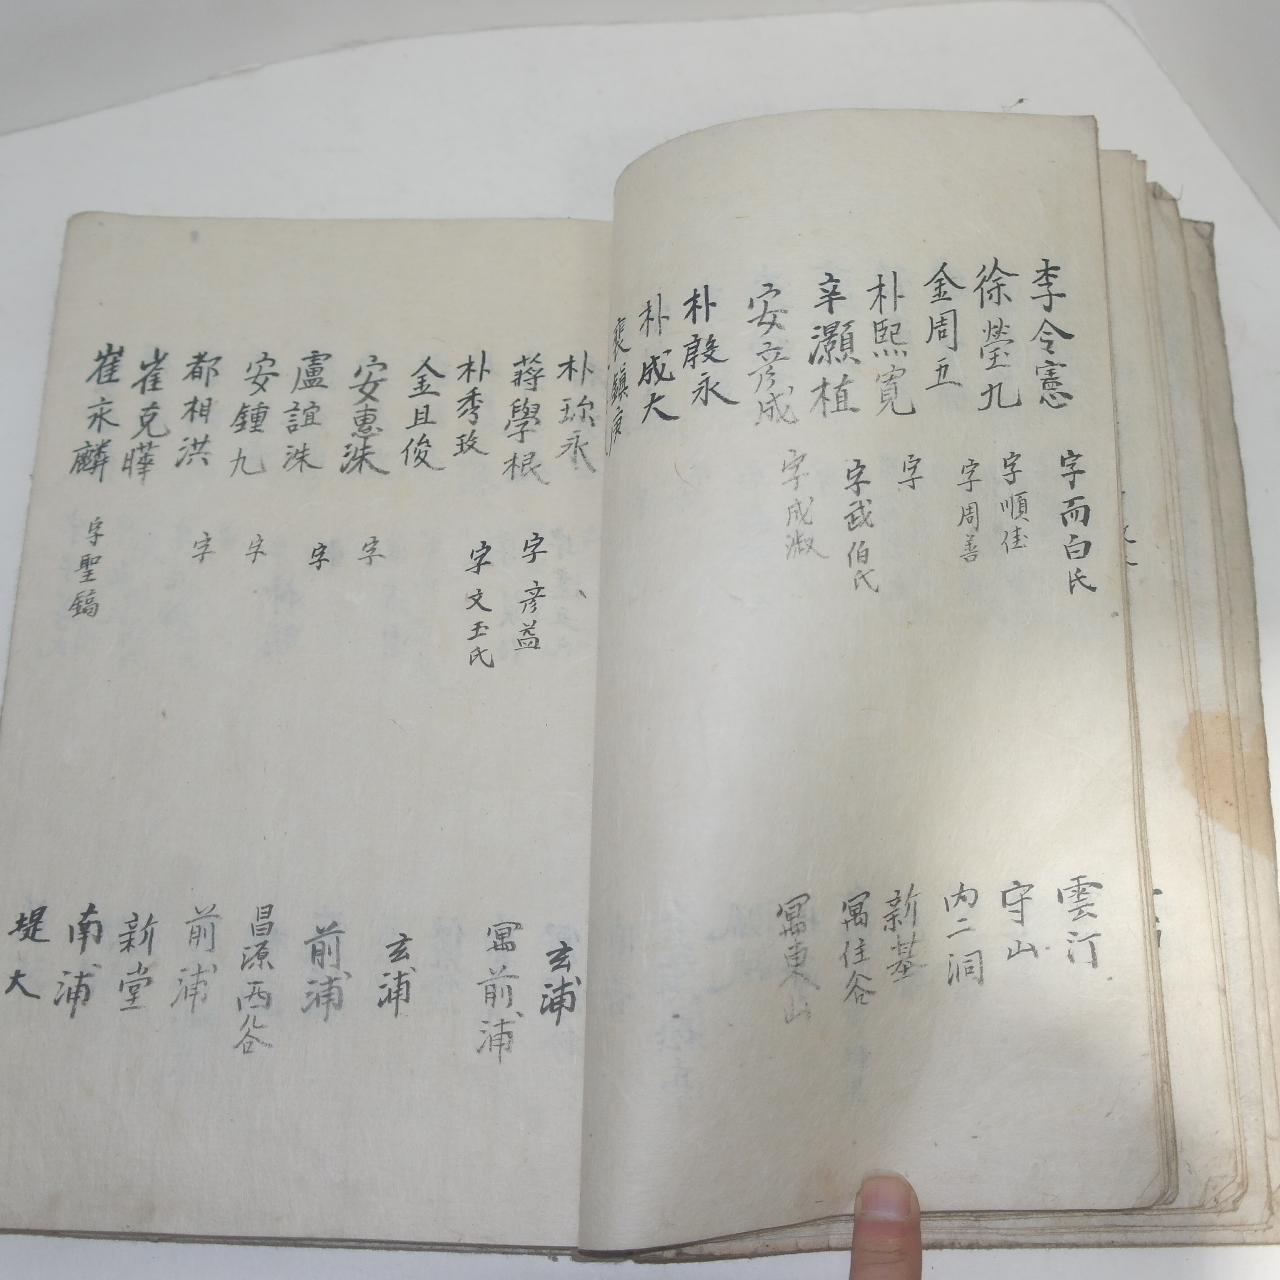 李令憲 字而白氏 雲汀
徐瑩九 字順佳 守山
金周五 字周善 內二洞
朴熙寬 字 新基
辛灝植 字武伯氏 寓佳谷
安彦成 字成淑 寓東山
朴殷永
朴成大
裵鎭庚
朴珎永 玄浦
蔣學根 字彦益 寓前浦
朴秀玫 字文玉氏
金且俊 玄浦
安惠洙 字 前浦
盧誼洙 字 昌源西谷
安鍾九 字 前浦
都相洪 字 新堂
崔克曄 南浦
崔永麟 字聖鎬 堤大